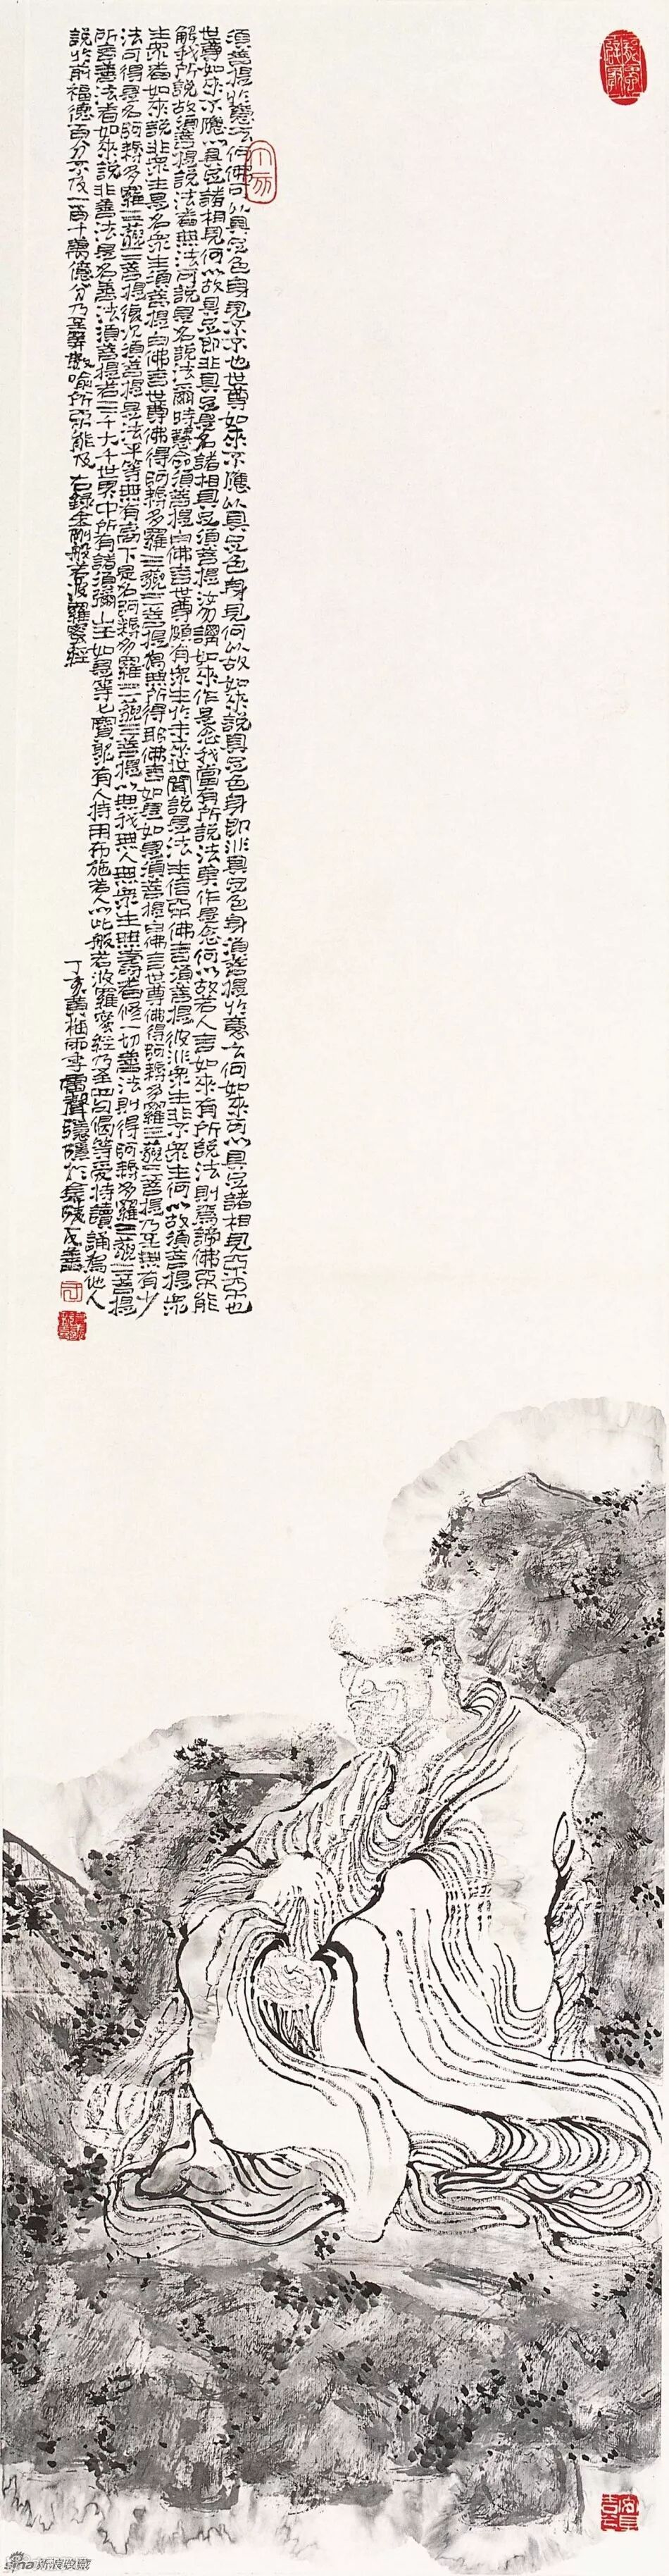 須菩提於意云何佛可以具足色身見不不也世尊如來不應以具足色身見何以故如來說具足色身即非具足色身須菩提於意云何如來可以具足諸相見不不也
世尊如來不應以具足諸相見何以故具足即非具足是名諸相具足須菩提汝勿謂如來作是念我當有所說法莫作是念何以故若人言如來有所說法則為謗佛不能
解我所說故須菩提說法者無法可說是名說法爾時慧命須菩提白佛言世尊頗有眾生於未來世聞說是法生信不佛言須菩提彼非眾生非不眾生何以故須菩提眾
生眾生者如來說非眾生是名眾生須菩提白佛言世尊佛得阿耨多羅三藐三菩提為無所得耶佛言如是如是須菩提白佛言世尊佛得阿耨多羅三藐三菩提乃至無有少
法可得是名阿耨多羅三藐三菩提復次須菩提是法平等無有高下是名阿耨多羅三藐三菩提以無我無人無眾生無壽者修一切善法則得阿耨多羅三藐三菩提
所言善法者如來說非善法是名善法須菩提若三千大千世界中所有諸須彌山王如是等七寶聚有人持用布施若人以此般若波羅蜜經乃至四句偈等受持讀誦為他人
說於前福德百分不及一百千萬億分乃至算數喻所不能及 右錄金剛般若波羅蜜經
丁亥黃梅雨季雷聲
sina新浪收藏